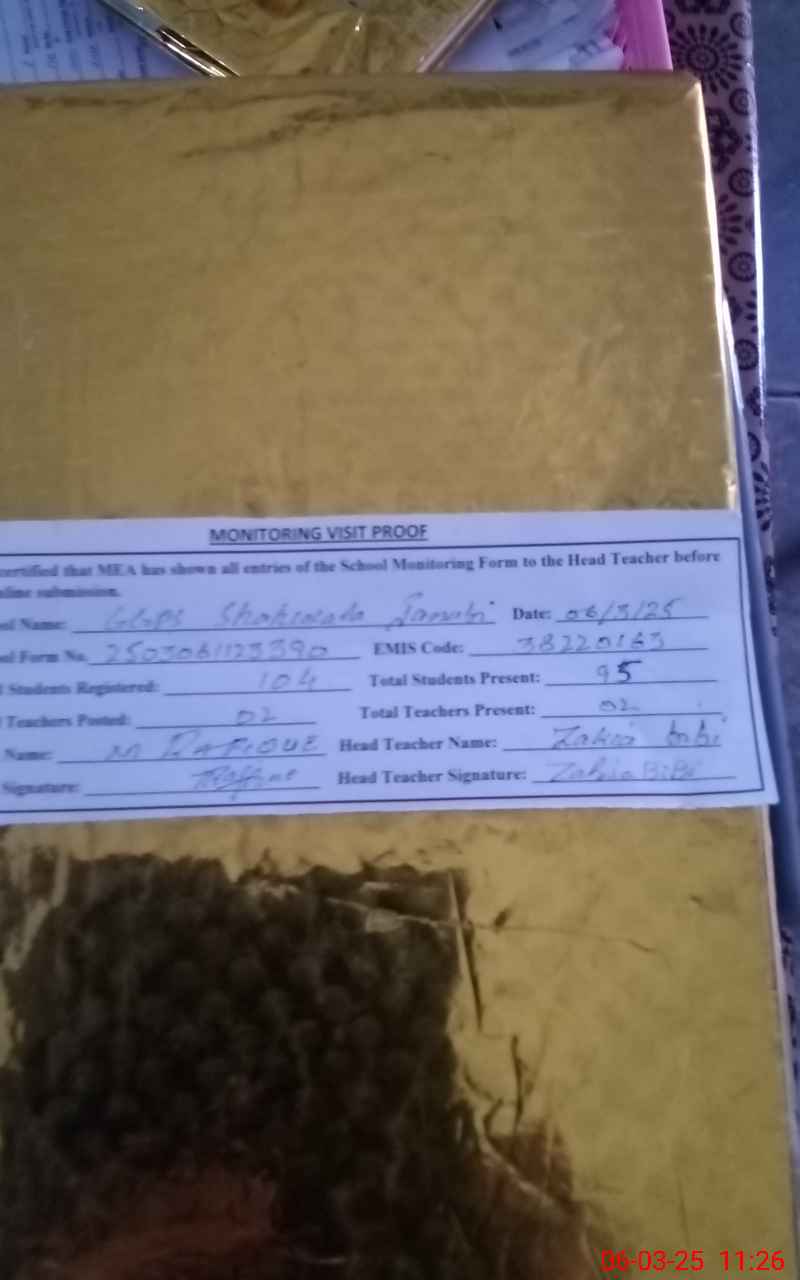 MONITORING VISIT PROOF
certified that MEA has shown all entries of the School Monitoring Form to the Head Teacher before
submission.
Name: GGPS Date: 06/3/25
Form No. 2503061123390 EMIS Code: 38220163
Students Registered: 104 Total Students Present: 95
Teachers Posted: 02 Total Teachers Present: 02
Name: M RAFIQUE Head Teacher Name: Zakia bibi
Signature: Head Teacher Signature: Zakia BiBi
06-03-25 11:26